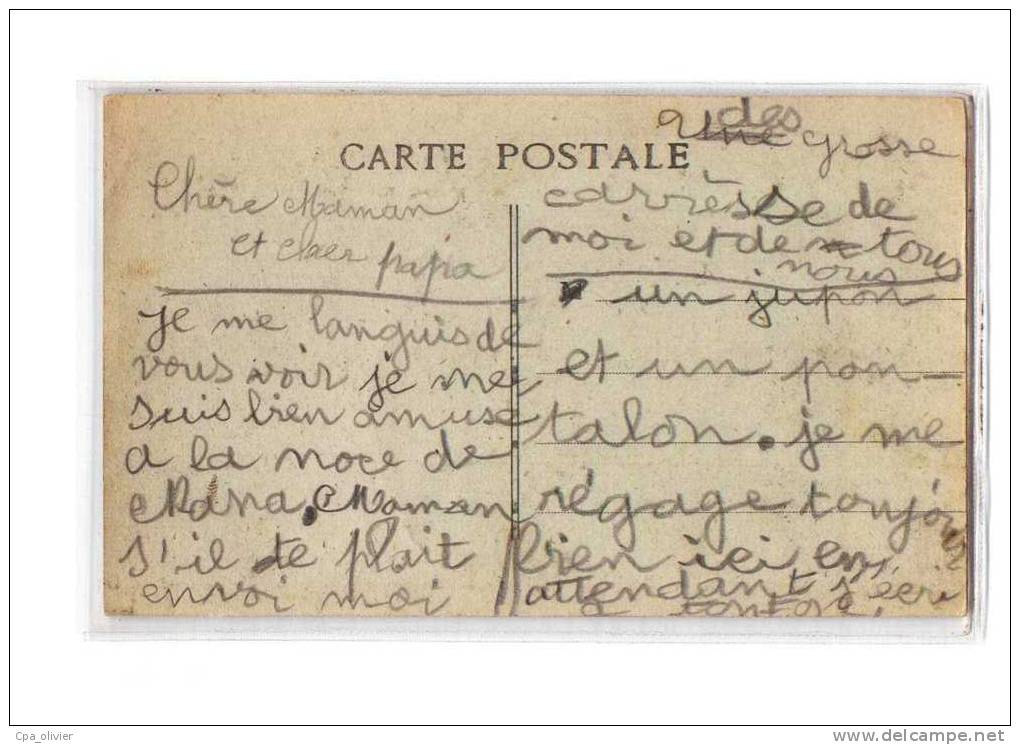 CARTE POSTALE
Chère Maman
et cher papa
Je me languis de
vous voir je me
suis bien amuse
a la noce de
Mana. Maman
s'il te plait
envoi moi
un jupon
et un pan-
talon. je me
régage toujours
bien ici en
attendant j'écri
des
Une grosse
carrèsse de
moi et de tous
nous
Cpa_olivier
www.delcampe.net